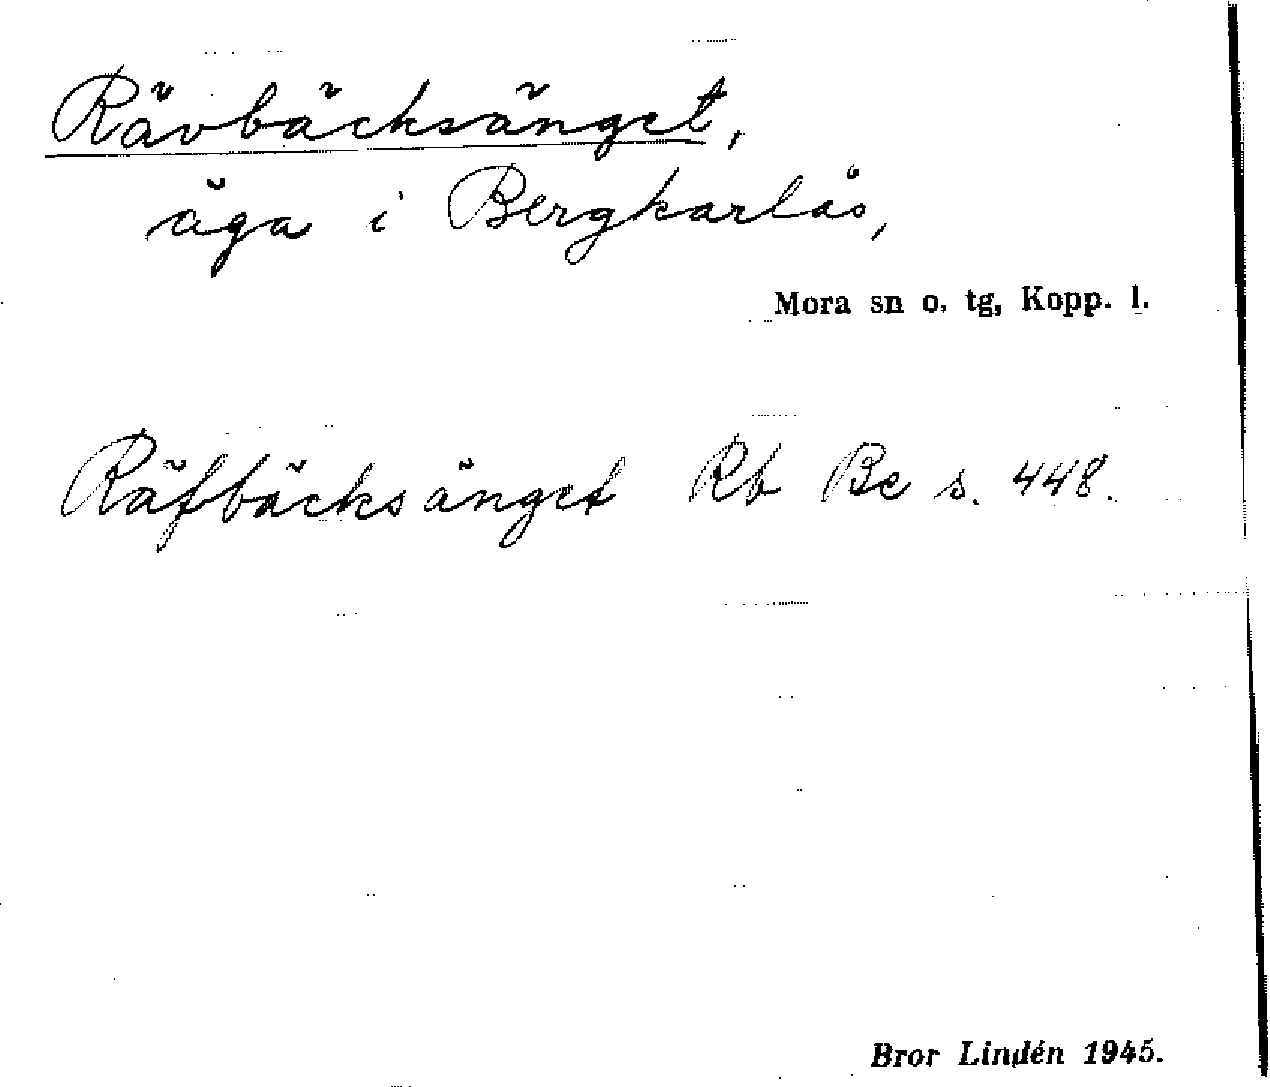 Rävbäcksänget,
äga i Bergkarlås,
Mora sn o. tg, Kopp. l.
Räfbäcksänget Rb Be s. 448.
Bror Lindén 1945.